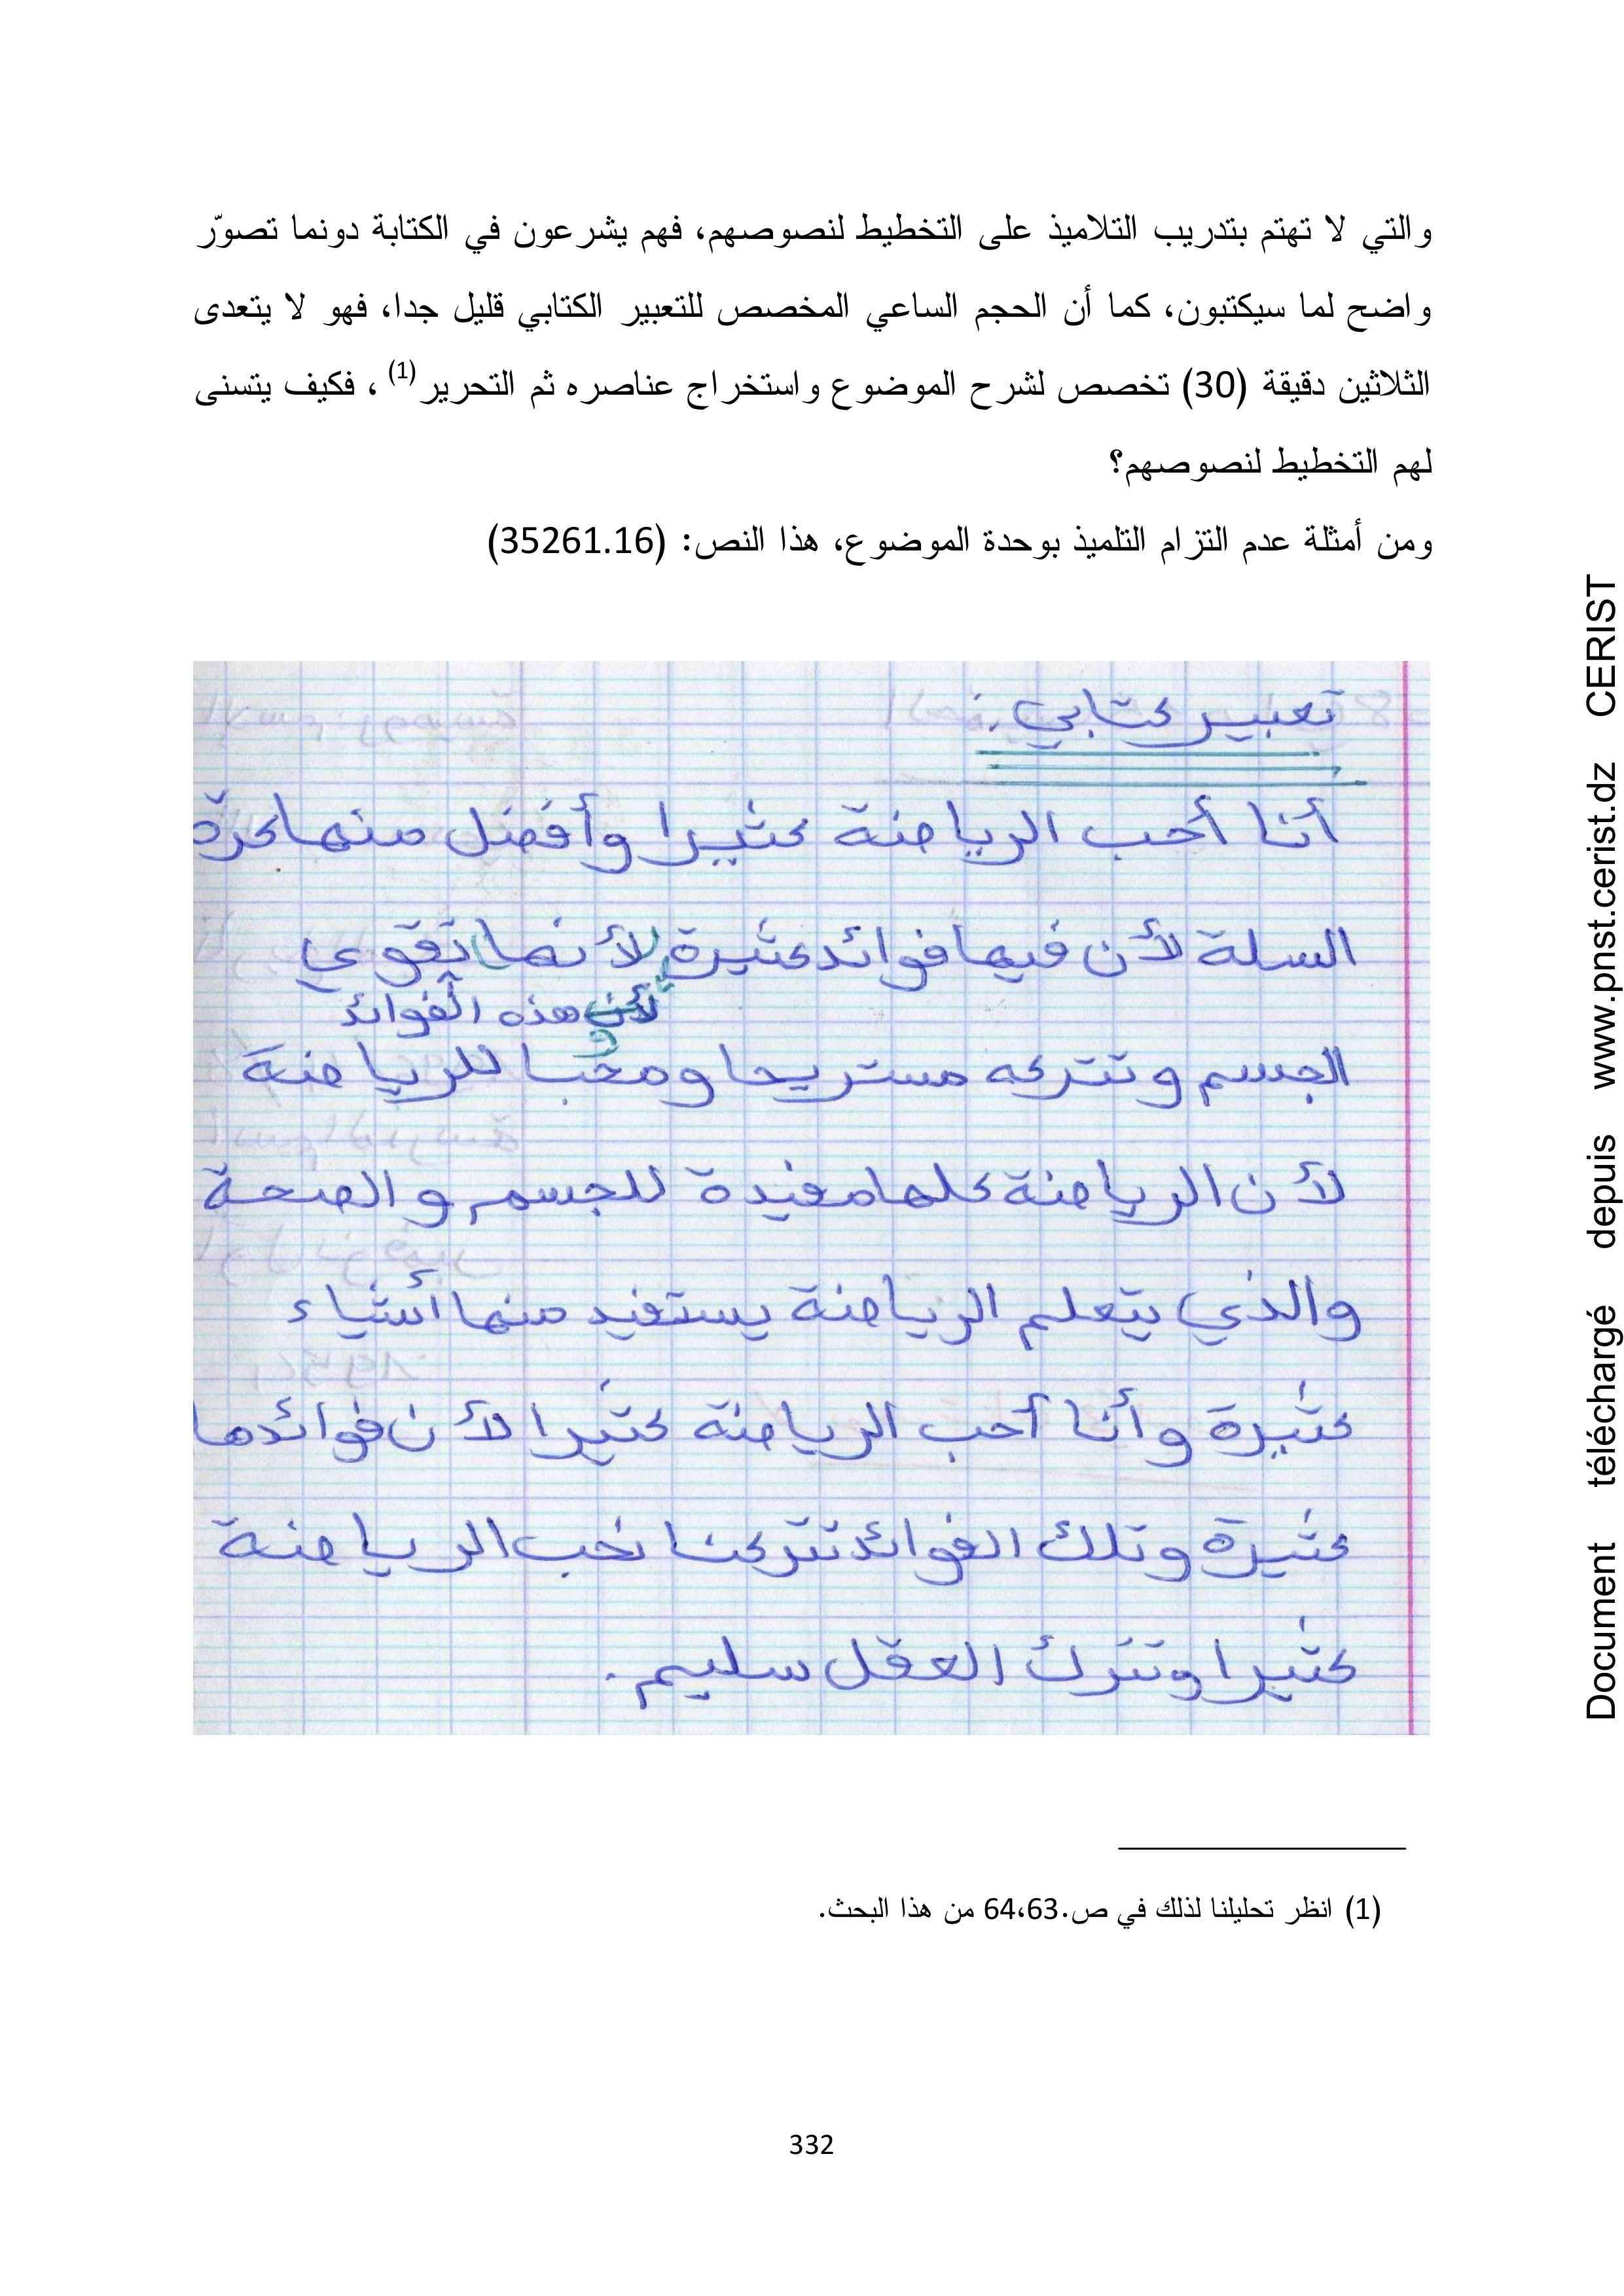 والتي لا تهتم بتدريب التلاميذ على التخطيط لنصوصهم، فهم يشرعون في الكتابة دونما تصوّر
واضح لما سيكتبون، كما أن الحجم الساعي المخصص للتعبير الكتابي قليل جدا، فهو لا يتعدى
الثلاثين دقيقة (30) تخصص لشرح الموضوع واستخراج عناصره ثم التحرير(1) ، فكيف يتسنى
لهم التخطيط لنصوصهم؟
ومن أمثلة عدم التزام التلميذ بوحدة الموضوع، هذا النص: (35261.16)
تعبير كتابي :
أنا أحب الرياضة كثيرا وأفضل منها كرة
السلة لأن فيها فوائد كثيرة لأنها تقوي
لأن هذه الفوائد
و
الجسم وتتركه مستريحا ومحبا للرياضة
لأن الرياضة كلها مفيدة للجسم والصحة
والذي يتعلم الرياضة يستفيد منها أشياء
كثيرة وأنا أحب الرياضة كثيرا لأن فوائدها
كثيرة وتلك الفوائد تتركنا نحب الرياضة
كثيرا وتترك العقل سليم.
(1) انظر تحليلنا لذلك في ص.64،63 من هذا البحث.
332
Document téléchargé depuis www.pnst.cerist.dz CERIST